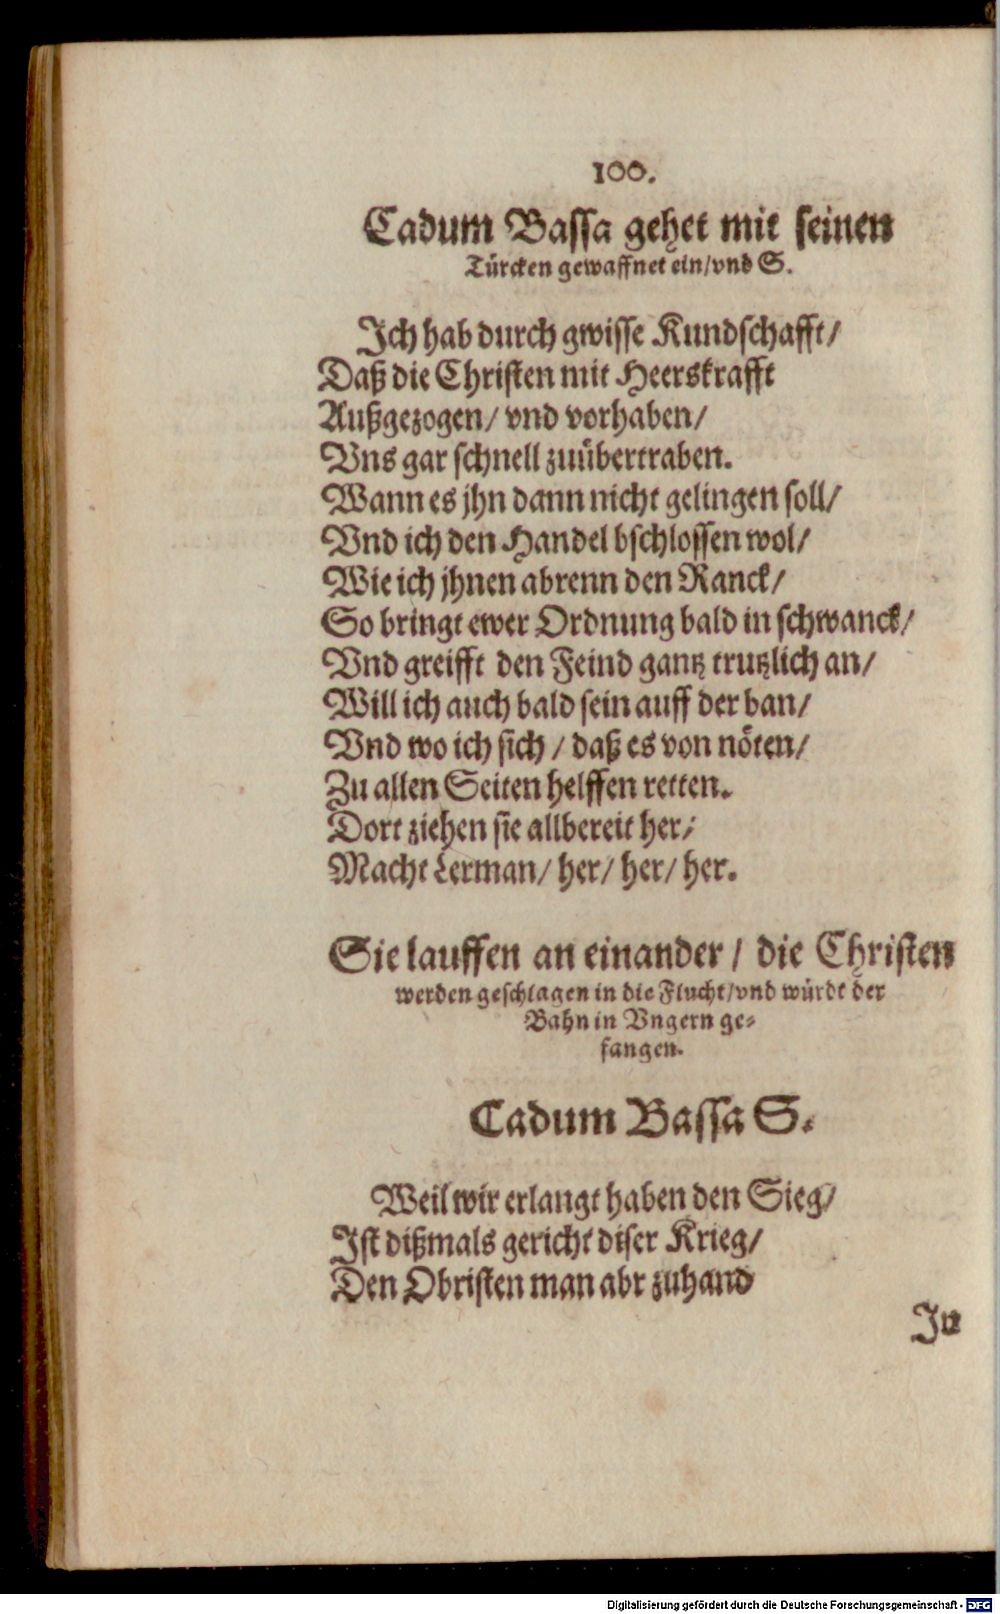 100.
Cadum Bassa gehet mit seinen
Türcken gewaffnet ein/vnd S.
Ich hab durch gwisse Kundschafft/
Daß die Christen mit Heerskrafft
Außgezogen/ vnd vorhaben/
Vns gar schnell zuübertraben.
Wann es jhn dann nicht gelingen soll/
Vnd ich den Handel bschlossen wol/
Wie ich jhnen abrenn den Ranck/
So bringt ewer Ordnung bald in schwanck/
Vnd greifft den Feind gantz trutzlich an/
Will ich auch bald sein auff der ban/
Vnd wo ich sich / daß es von nöten/
Zu allen Seiten helffen retten.
Dort ziehen sie allbereit her/
Macht Lerman/ her/ her/ her.
Sie lauffen an einander / die Christen
werden geschlagen in die Flucht/vnd würdt der
Bahn in Vngern ge-
fangen.
Cadum Bassa S.
Weil wir erlangt haben den Sieg/
Ist dißmals gericht diser Krieg/
Den Obristen man abr zuhand
In
Digitalisierung gefördert durch die Deutsche Forschungsgemeinschaft - DFG